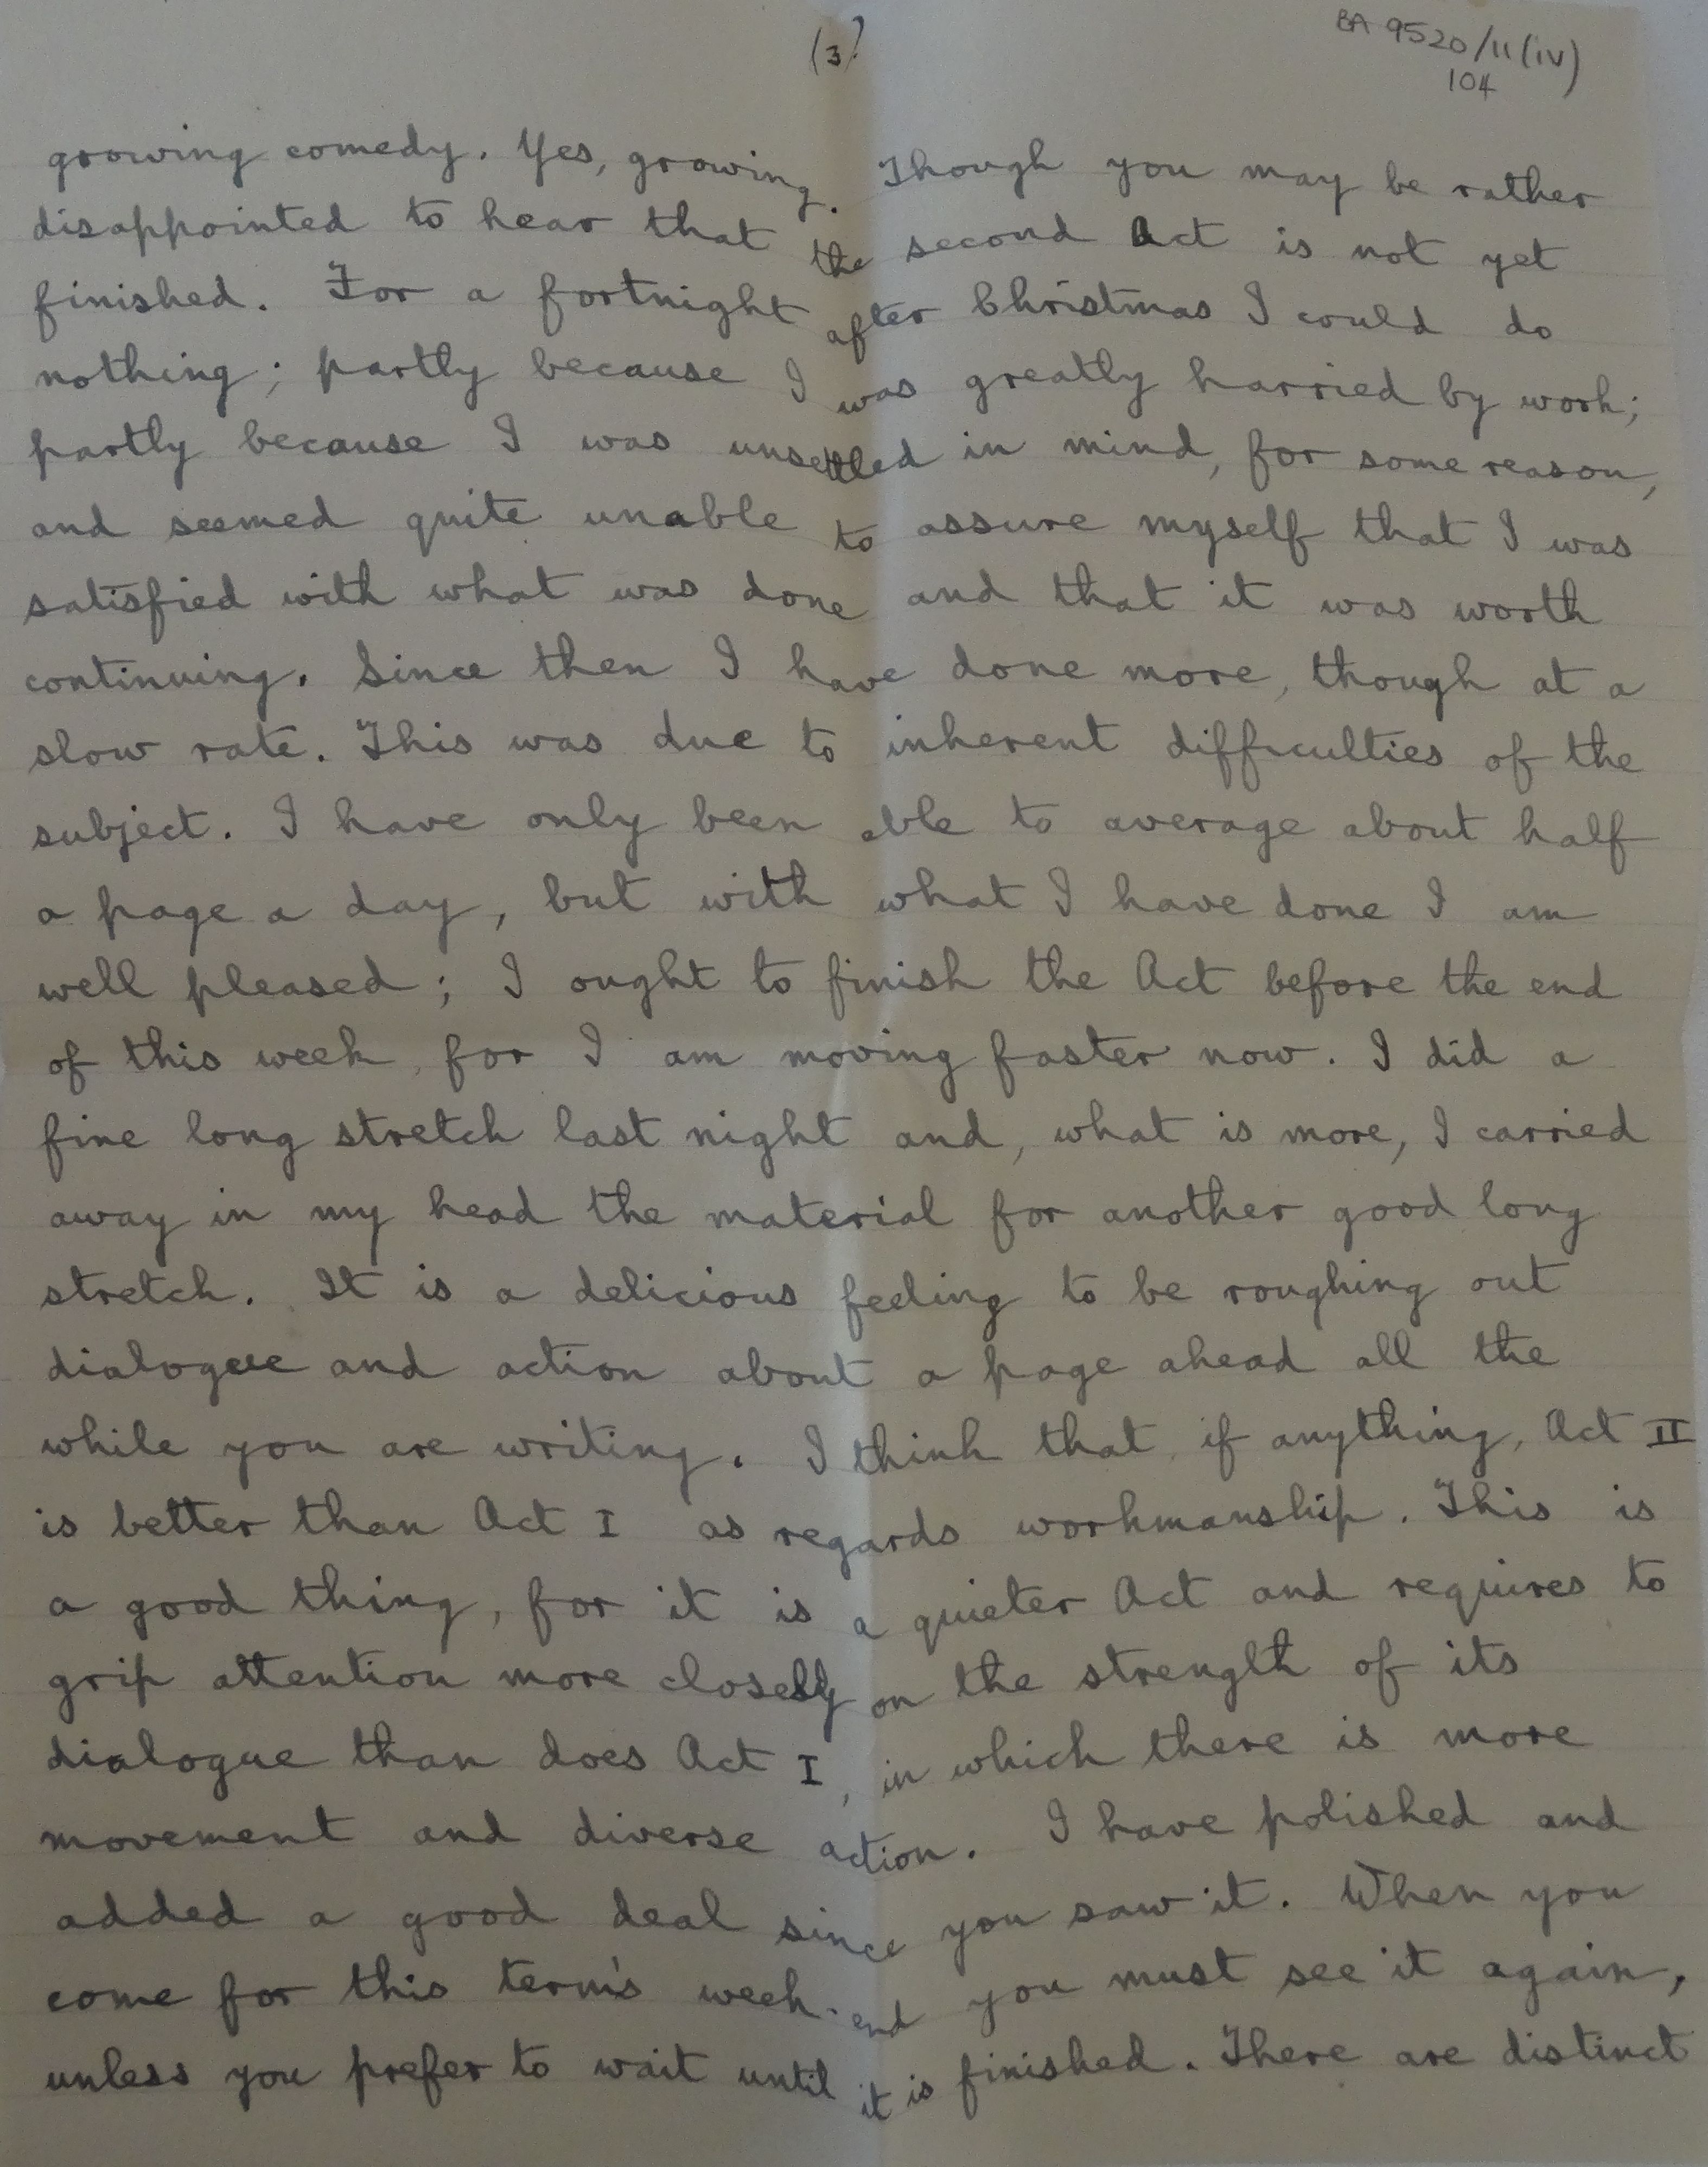 (3)
BA 9520/11(iv)
104
growing comedy. Yes, growing. Though you may be rather
disappointed to hear that the second Act is not yet
finished. For a fortnight after Christmas I could do
nothing; partly because I was greatly harried by work;
partly because I was unsettled in mind, for some reason,
and seemed quite unable to assure myself that I was
satisfied with what was done and that it was worth
continuing. Since then I have done more, though at a
slow rate. This was due to inherent difficulties of the
subject. I have only been able to average about half
a page a day, but with what I have done I am
well pleased; I ought to finish the Act before the end
of this week, for I am moving faster now. I did a
fine long stretch last night and, what is more, I carried
away in my head the material for another good long
stretch. It is a delicious feeling to be roughing out
dialogue and action about a page ahead all the
while you are writing. I think that, if anything, Act II
is better than Act I as regards workmanship. This is
a good thing, for it is a quieter Act and requires to
grip attention more closely on the strength of its
dialogue than does Act I, in which there is more
movement and diverse action. I have polished and
added a good deal since you saw it. When you
come for this term's week-end you must see it again,
unless you prefer to wait until it is finished. There are distinct